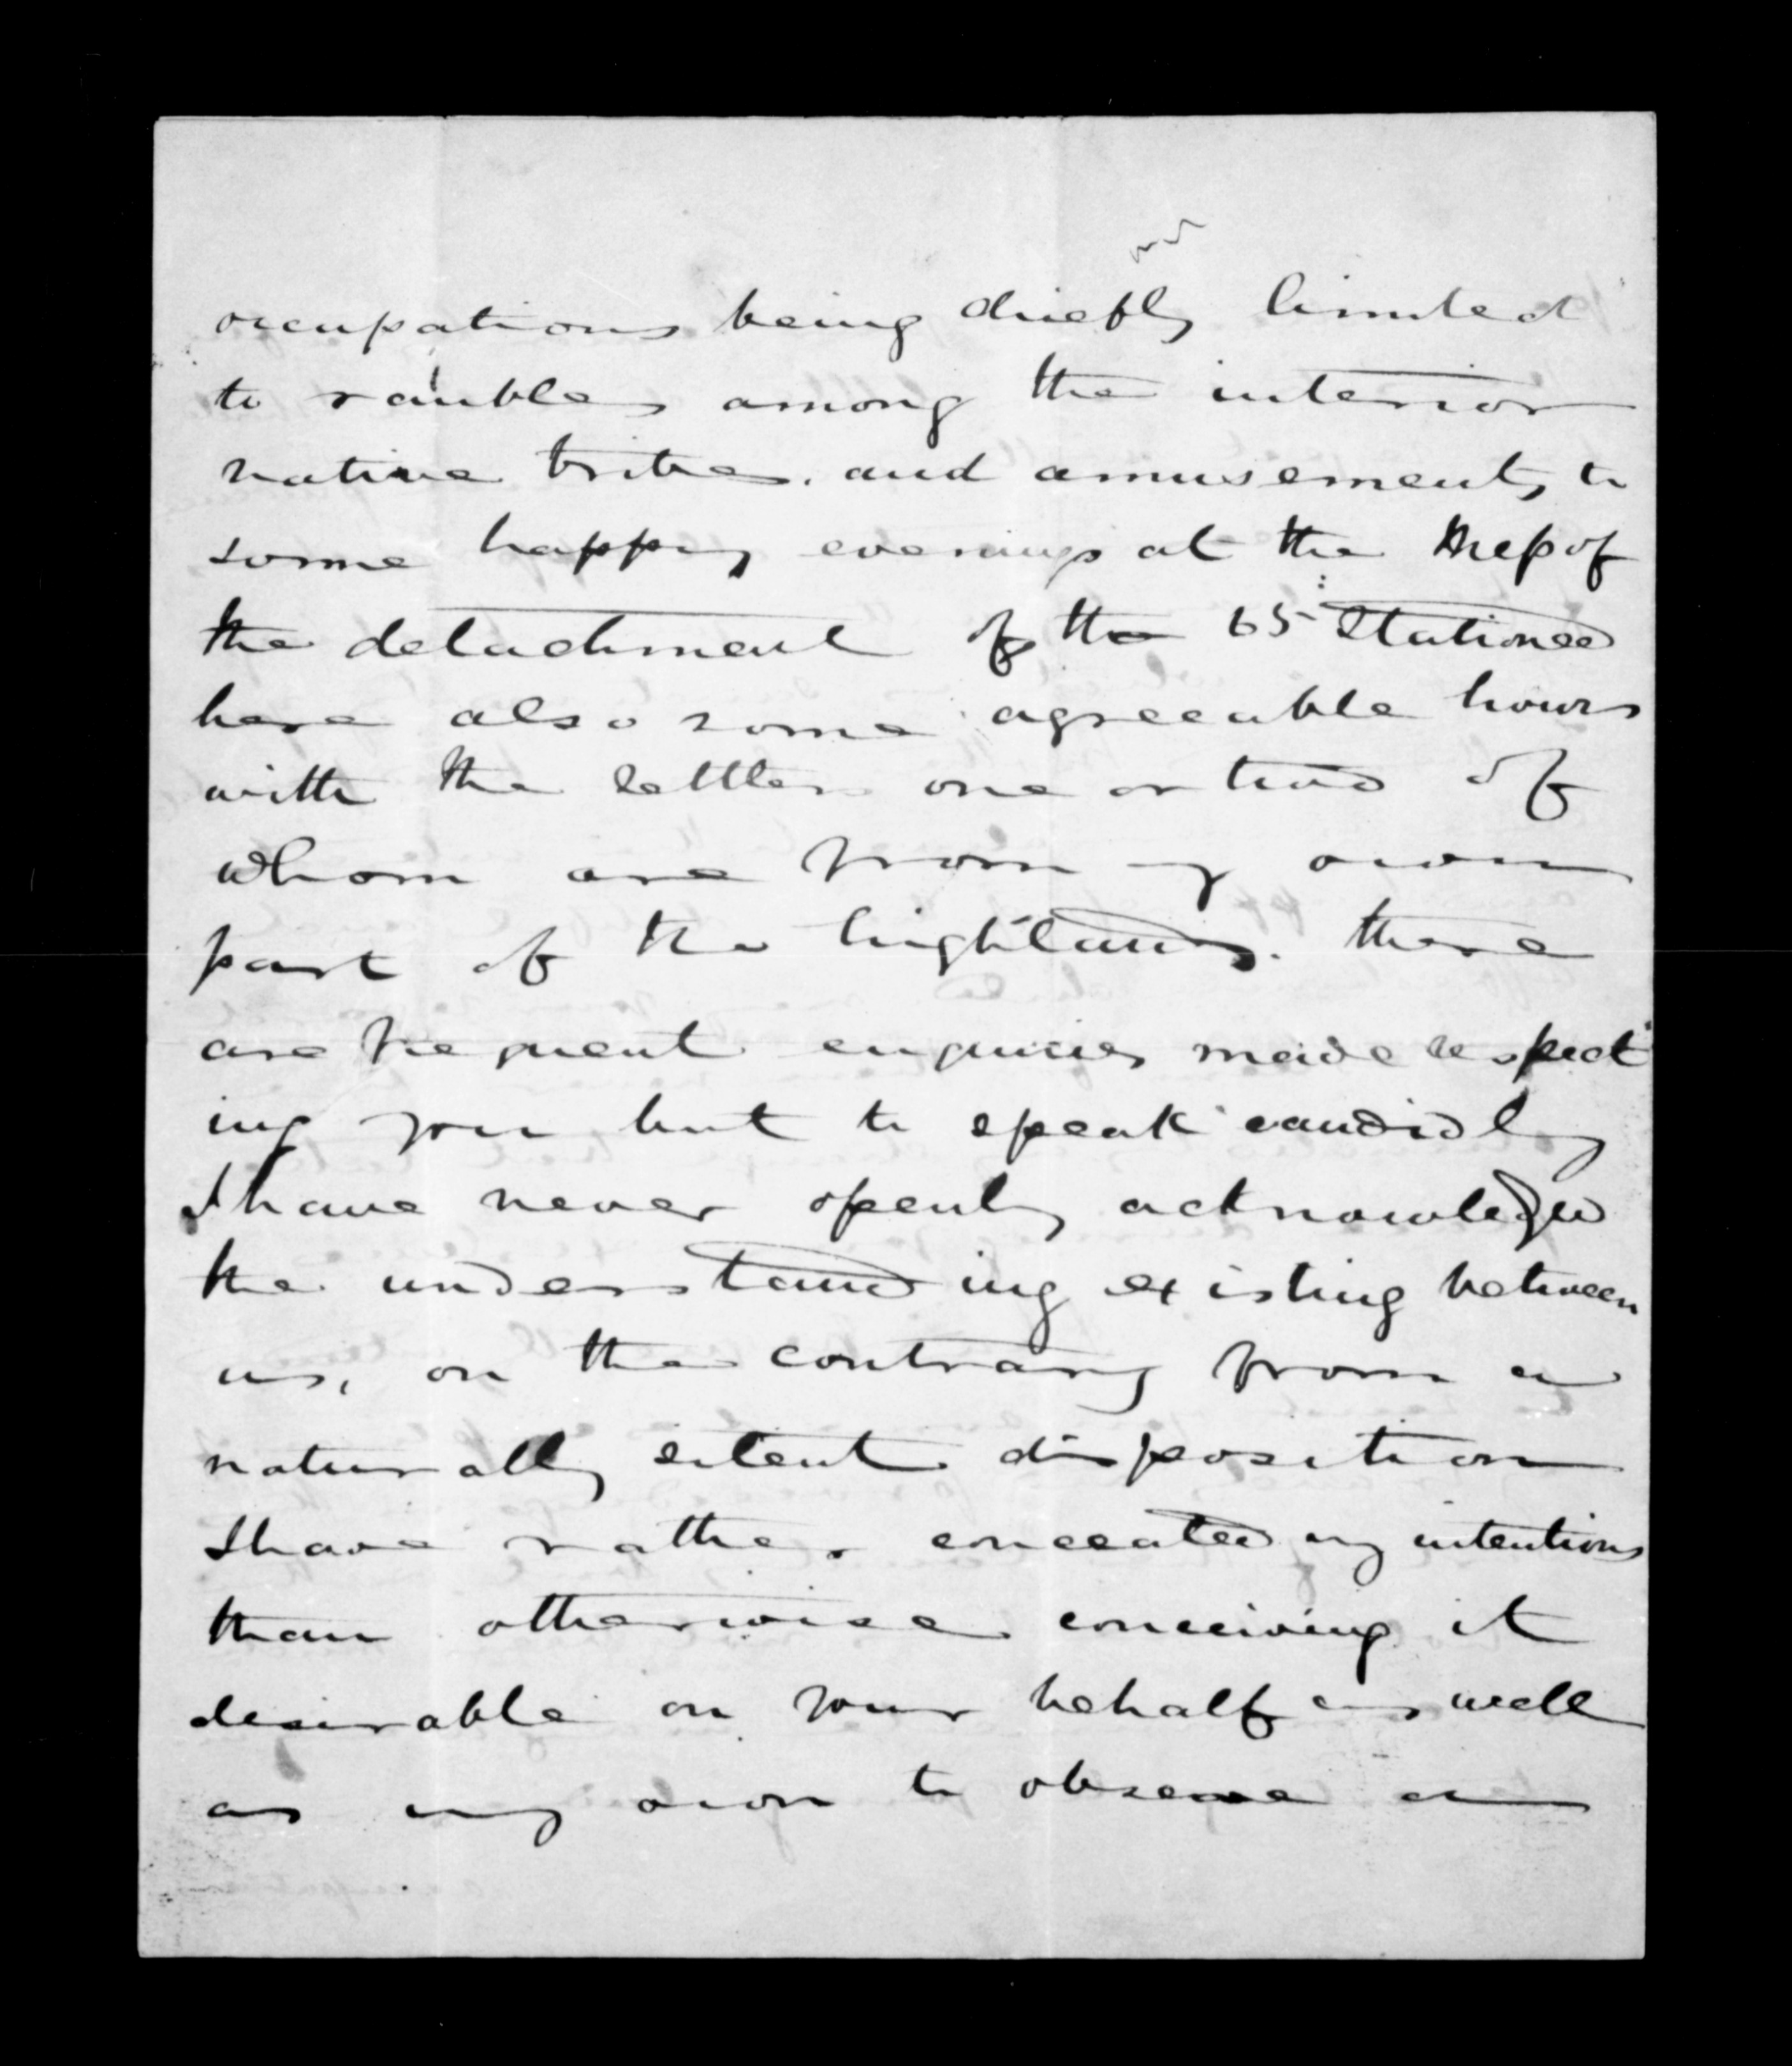 occupations being chiefly limited
to rambles among the interior
native tribes. and amusements, to
some happy evenings at the Mess of
the detachment of the 65 Stationed
here also some agreeable hours
with the settlers one or two of
whom are from my own
part of the highlands. there
are frequent enquiries made respect
ing you but to speak candidly
I have never openly acknowledged
the understanding existing between
us, on the contrary from a
naturally silent disposition
I have rather concealed my intentions
than otherwise conceiving it
desirable on your behalf as well
as my own to observe a